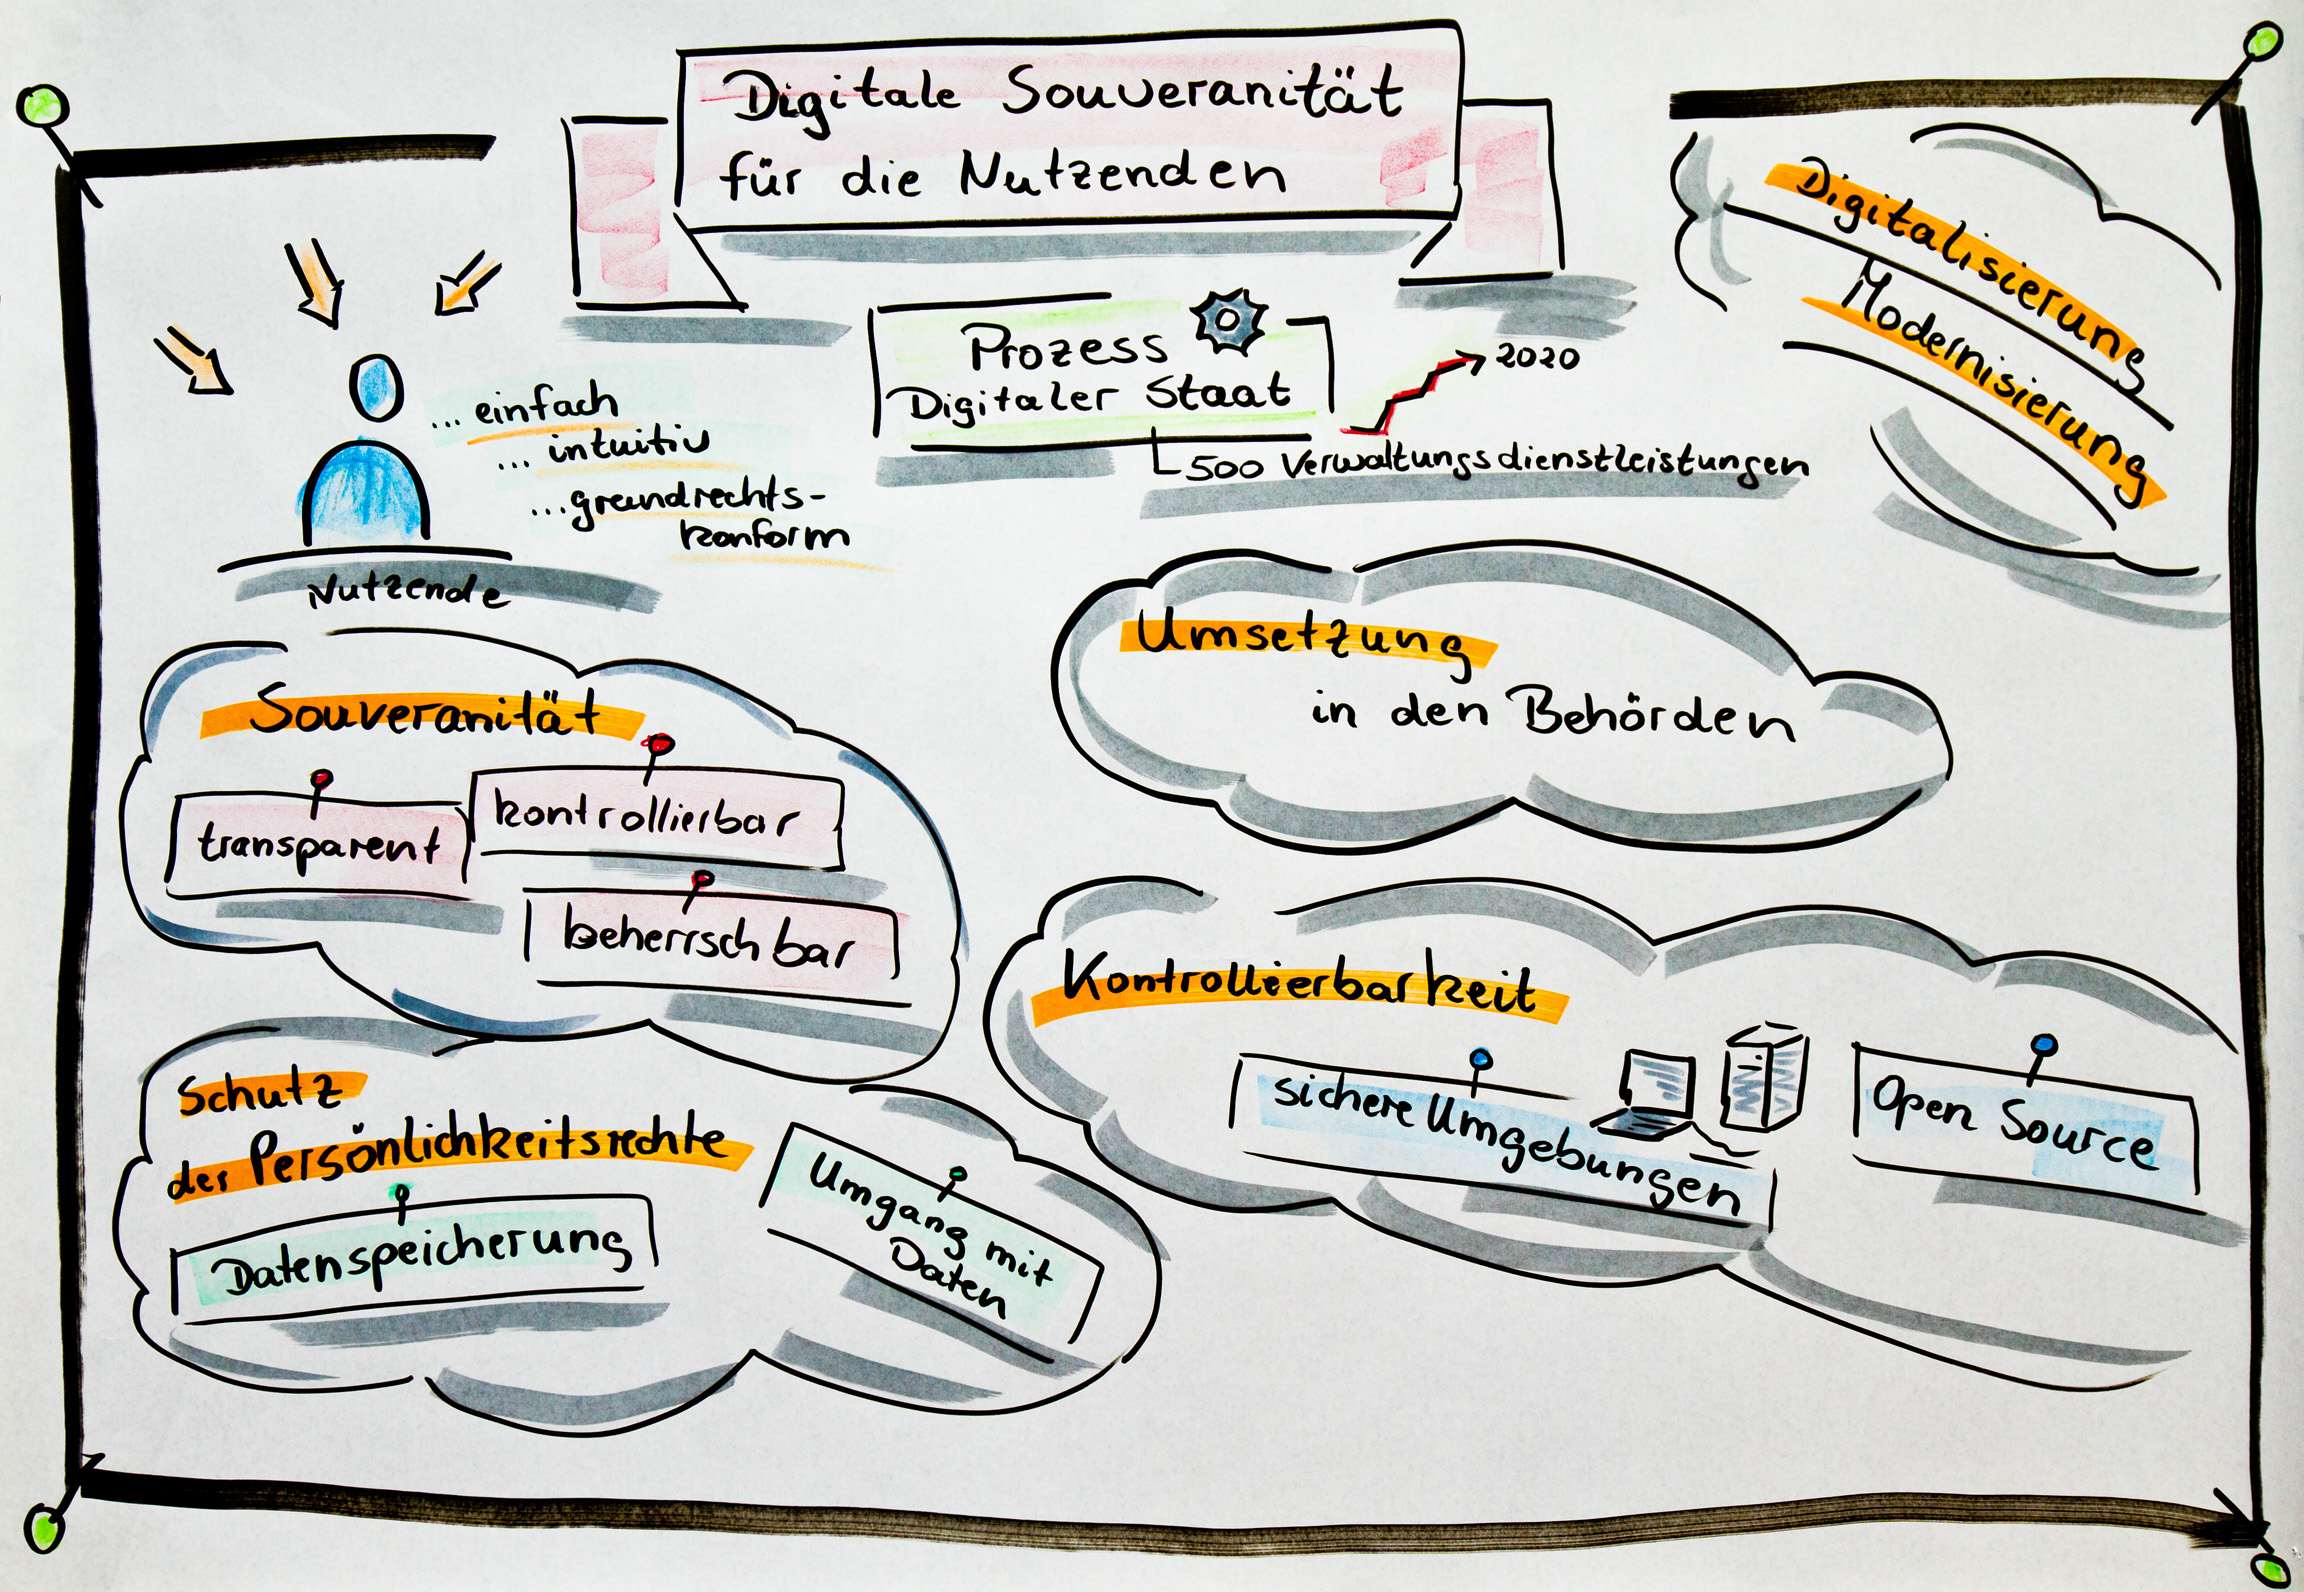 Digitale Souveranität
für die Nutzenden
Prozess
Digitaler Staat
2020
500 Verwaltungsdienstleistungen
Digitalisierung
Modernisierung
... einfach
... intuitiv
... grundrechts-
konform
Nutzende
Umsetzung
in den Behörden
Souveranität
transparent
kontrollierbar
beherrschbar
Kontrollierbarkeit
sichere Umgebungen
Open Source
Schutz
der Persönlichkeitsrechte
Datenspeicherung
Umgang mit
Daten